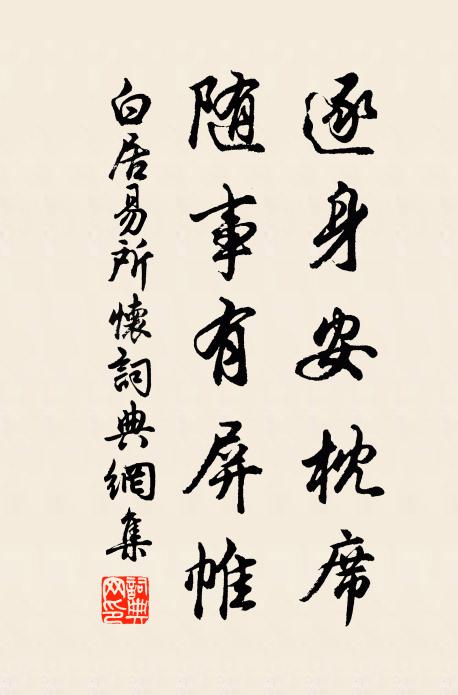 逐身安枕席
随事有屏帷
白居易所懷詞典網集
詞典网印